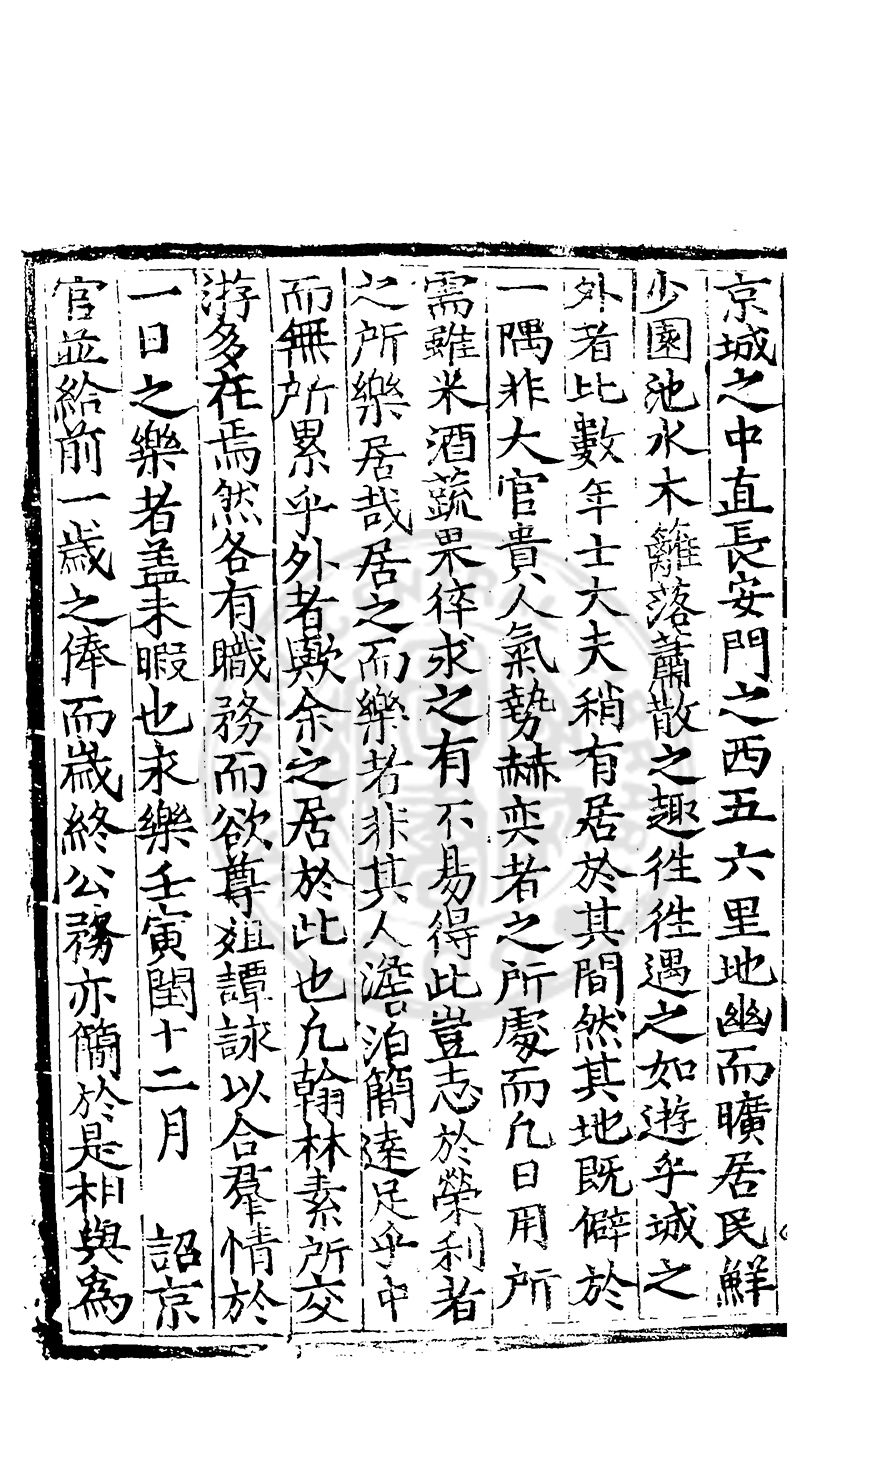 京城之中直長安門之西五六里地幽而曠居民鮮
少園池水木籬落蕭散之趣徃徃遇之如遊乎城之
外者比數年士大夫稍有居於其間然其地既僻於
一隅非大官貴人氣勢赫奕者之所處而凡日用所
需雖米酒蔬果猝求之有不易得此豈志於榮利者
之所樂居哉居之而樂者非其人澹泊簡遠足乎中
而無所累乎外者歟余之居於此也凡翰林素所交
游多在焉然各有職務而欲尊俎譚詠以合羣情於
一日之樂者盖未暇也永樂壬寅閏十二月 詔京
官並給前一歲之俸而歲終公務亦簡於是相與爲